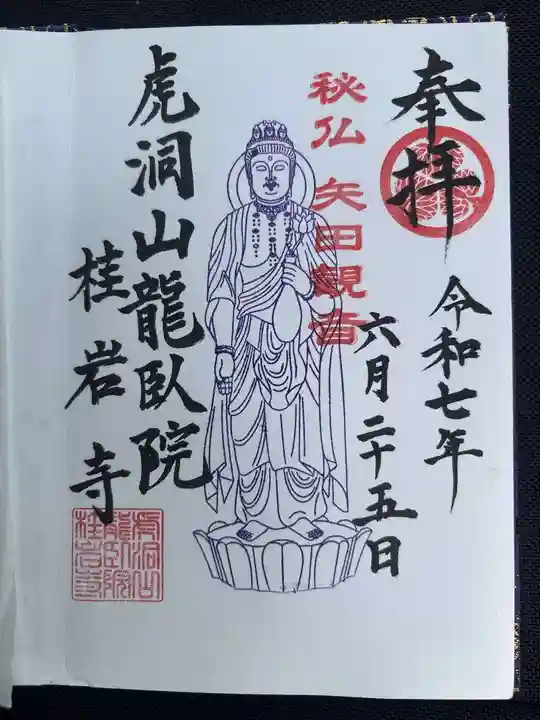 奉拝
令和七年
六月二十五日
秘仏 矢田観音
虎洞山龍臥院
桂岩寺
虎洞山
龍臥院
桂岩寺